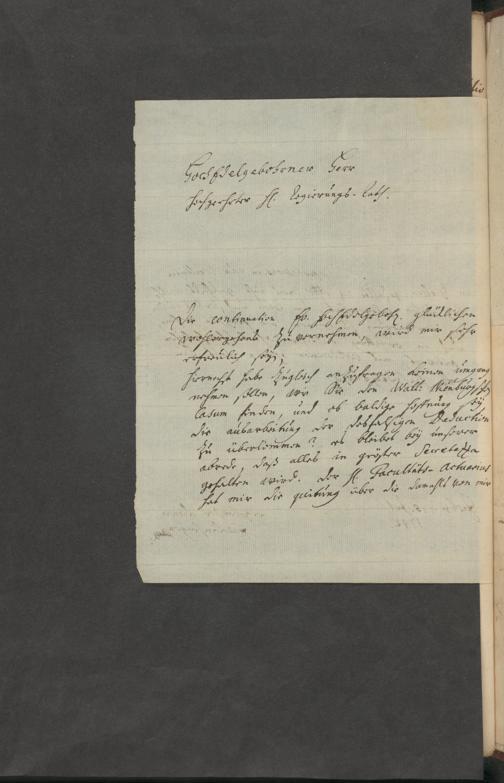 HochEdelgebohrner Herr
Hochgeehrter H. Regierungs-Rath.
Die continuation Ew. HochEdelgeb. glücklichen
wohlergehens zu vernehmen, wird mir sehr
erfreulich seÿn,
hiernächst habe zugleich anzufragen keinen umgang
nehmen sollen, wie Sie den
Casum finden, und ob baldige hoffnung seÿ
die ausarbeitung der desfalsigen Deduction
zu überkommen? es bleibet beÿ unserer
abrede, daß alles in gröster Secretesse
gehalten wird. Der H. Facultäts-Actuarius
hat mir die quitung über die von mir